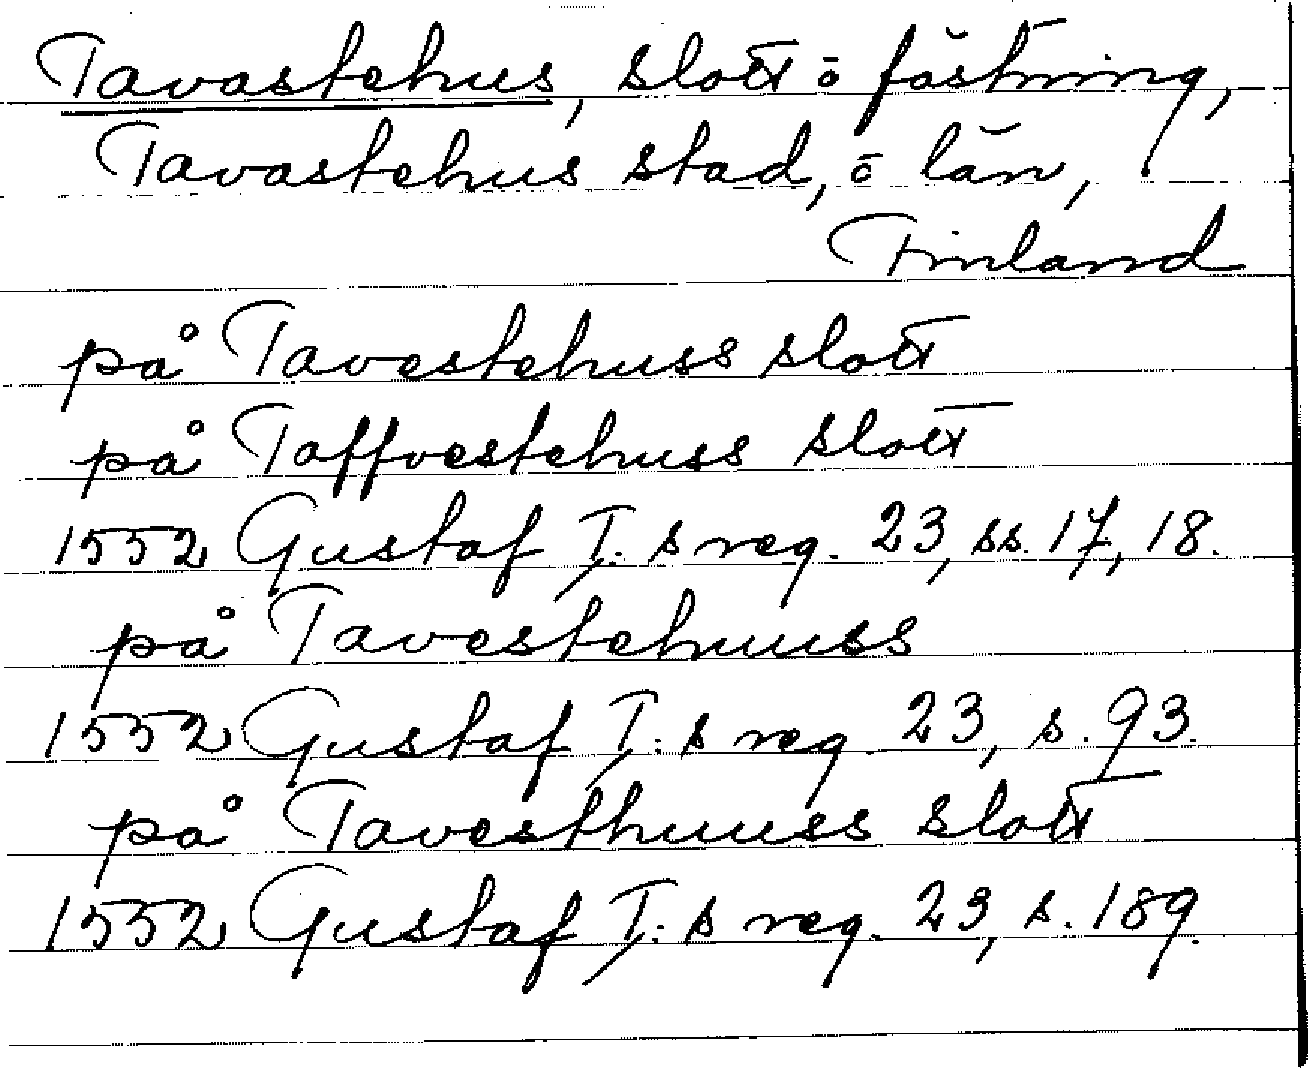 Tavastehus, slott o fästning,
Tavastehus stad, o län,
Finland
på Tavestehuss slott
på Taffvestehuss slott
1552 Gustaf I:s reg. 23, ss. 17, 18.
på Tavestehuuss
1552 Gustaf I:s reg. 23, s. 93.
på Tavesthuuss slott
1552 Gustaf I:s reg. 23, s. 189.